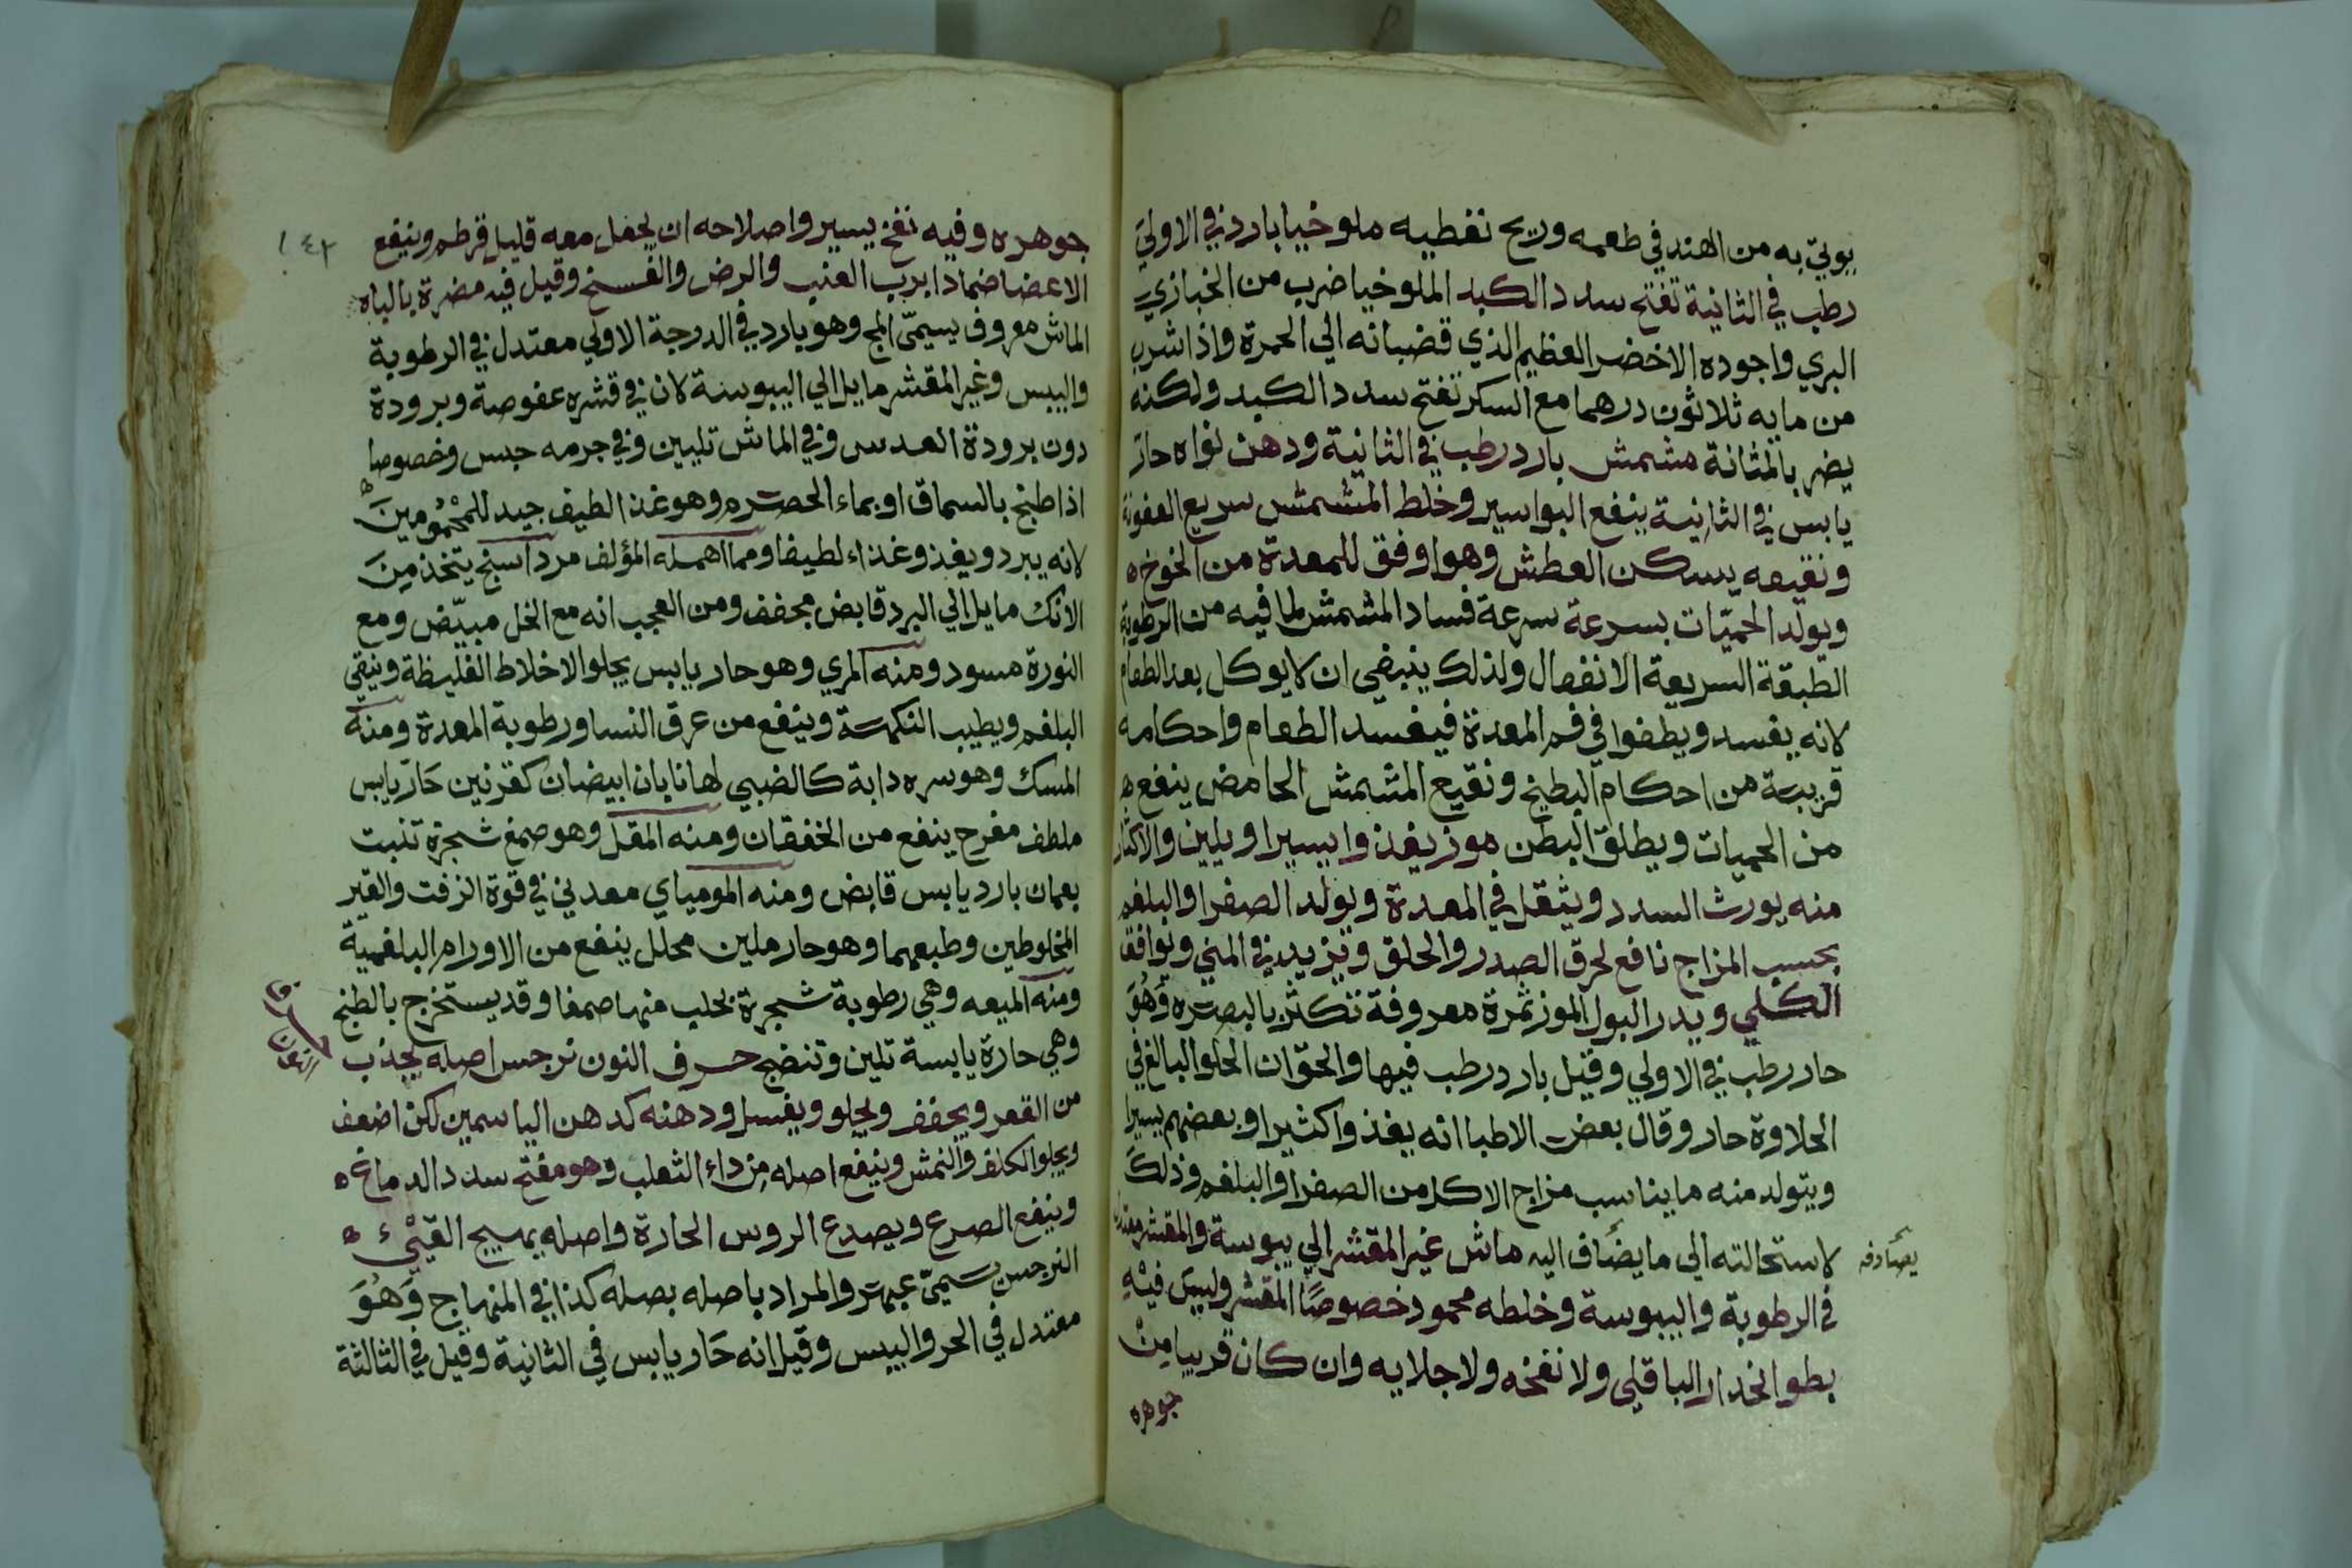 يوتي به من الهند في طعمه وريح نفطيه ملوخيا بارد في الاولي
رطب في الثانية تفتح سدد الكبد الملوخيا ضرب من الخبازي
البري واجوده الاخضر العظيم الذي قضبانه الي الحمرة واذا شرب
من مايه ثلاثون درهما مع السكر تفتح سدد الكبد ولكنه
يضر بالمثانة مشمش بارد رطب في الثانية ودهن نواه حار
يابس في الثانية ينفع البواسير وخلط المشمش سريع العفونة
ونقيعه يسكن العطش وهو اوفق للمعدة من الخوخ
ويولد الحميّات بسرعة سرعة فساد المشمش لما فيه من الرطوبة
الطبقة السريعة الانفعال ولذلك ينبغي ان لا يوكل بعد الطعام
لانه يفسد ويطفوا في فم المعدة فيفسد الطعام واحكامه
قريبة من احكام البطيخ ونقيع المشمش الحامض ينفع
من الحميات ويطلق البطن موز يغذوا يسيرا ويلين والاكثار
منه يورث السدد ويثقل في المعدة ويولد الصفرا والبلغم
بحسب المزاج نافع لحرق الصدر والحلق وتزيد في المني ويوافق
الكلي ويدر البول الموز ثمرة معروفة تكثر بالبصره وَهُوَ
حار رطب في الاولي وقيل بارد رطب فيها والحق ان الحلو البالغ في
الحلاوة حار وقال بعض الاطبا انه يغذوا كثيرا وبعضهم يسيرا
ويتولد منه ما يناسب مزاج الاكل من الصفرا والبلغم وذلك
لاستحالته الي ما يضاف اليه ماش غير المقشر الي يبوسة والمقشر معتدل
يصادفه
في الرطوبة واليبوسة وخلطه محمود خصوصًا المقشر وليس فيْهِ
بطو انحدار الباقلي ولا نفخه ولا جلايه وان كان قريبا مِنْ
جوهره
١٤٢
جوهره وفيه نفخ يسير واصلاحه ان يجعل معه قليل قرطم وينفع
الاعضا ضمادا برب العنب والرض والفسخ وقيل فيه مضرة بالباه
الماش معروف يسمّى المج وهو بارد في الدرجة الاولي معتدل في الرطوبة
واليبس وغير المقشر مايل الي اليبوسة لان في قشره عفوصة وبرودة
دون برودة العدس وفي الماش تليين وفي جرمه حبس وخصوصا
اذا طبخ بالسماق او بماء الحصرم وهو غذا لطيف جيد للمحْمُومينَ
لانه يبرد ويغذو غذاء لطيفا ومما اهمله المؤلف مرداسنج يتخذ مِنَ
الانك مايل الي البرد قابض مجفف ومن العجب انه مع الخل مبيّض ومع
النورة مسود ومنه المري وهو حار يابس يجلو الاخلاط الغليظة وينقي
البلغم ويطيب النكهة وينفع من عرق النسا ورطوبة المعدة ومنه
المسك وهو سره دابة كالضبي لها نابان ابيضان كقرنين حَار يابس
ملطف مفرح ينفع من الخفقان ومنه المقل وهو صمغ شجرة تنبت
بعمان بارد يابس قابض ومنه المومياي معدني في قوة الزفت والقير
المخلوطين وطبعهما وهو حار ملين محلل ينفع من الاورام البلغمية
ومنه الميعه وهي رطوبة شجرة يحلب منها صمغا وقد يستخرج بالطبخ
وهي حارة يابسة تلين وتنضج حرف النون نرجس اصله يجذب
من القعر ويجفف ويجلو ويغسل ودهنه كدهن الياسمين لكن اضعف
ويجلو الكلف والنمش وينفع اصله من داء الثعلب وهو مفتح سدد الدماغ
وينفع الصرع ويصدع الروس الحارة واصله يهيج القيْ
النرجس يسمى عبهر والمراد باصله بصله كذا في المنهاج وَهُوَ
معتدل في الحر واليبس وقيل انه حَار يابس في الثانية وقيل في الثالثة
حرف
النون